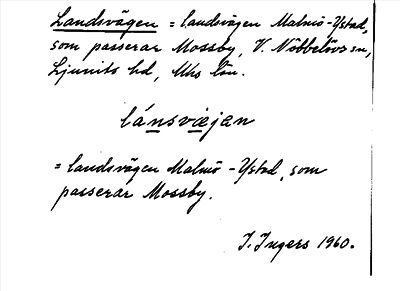 Landsvägen = landsvägen Malmö-Ystad,
som passerar Mossby, V. Nöbbelövs sn,
Ljunits hd, Mhs län.
lánsvæjen
= landsvägen Malmö - Ystad, som
passerar Mossby.
I. Ingers 1960.